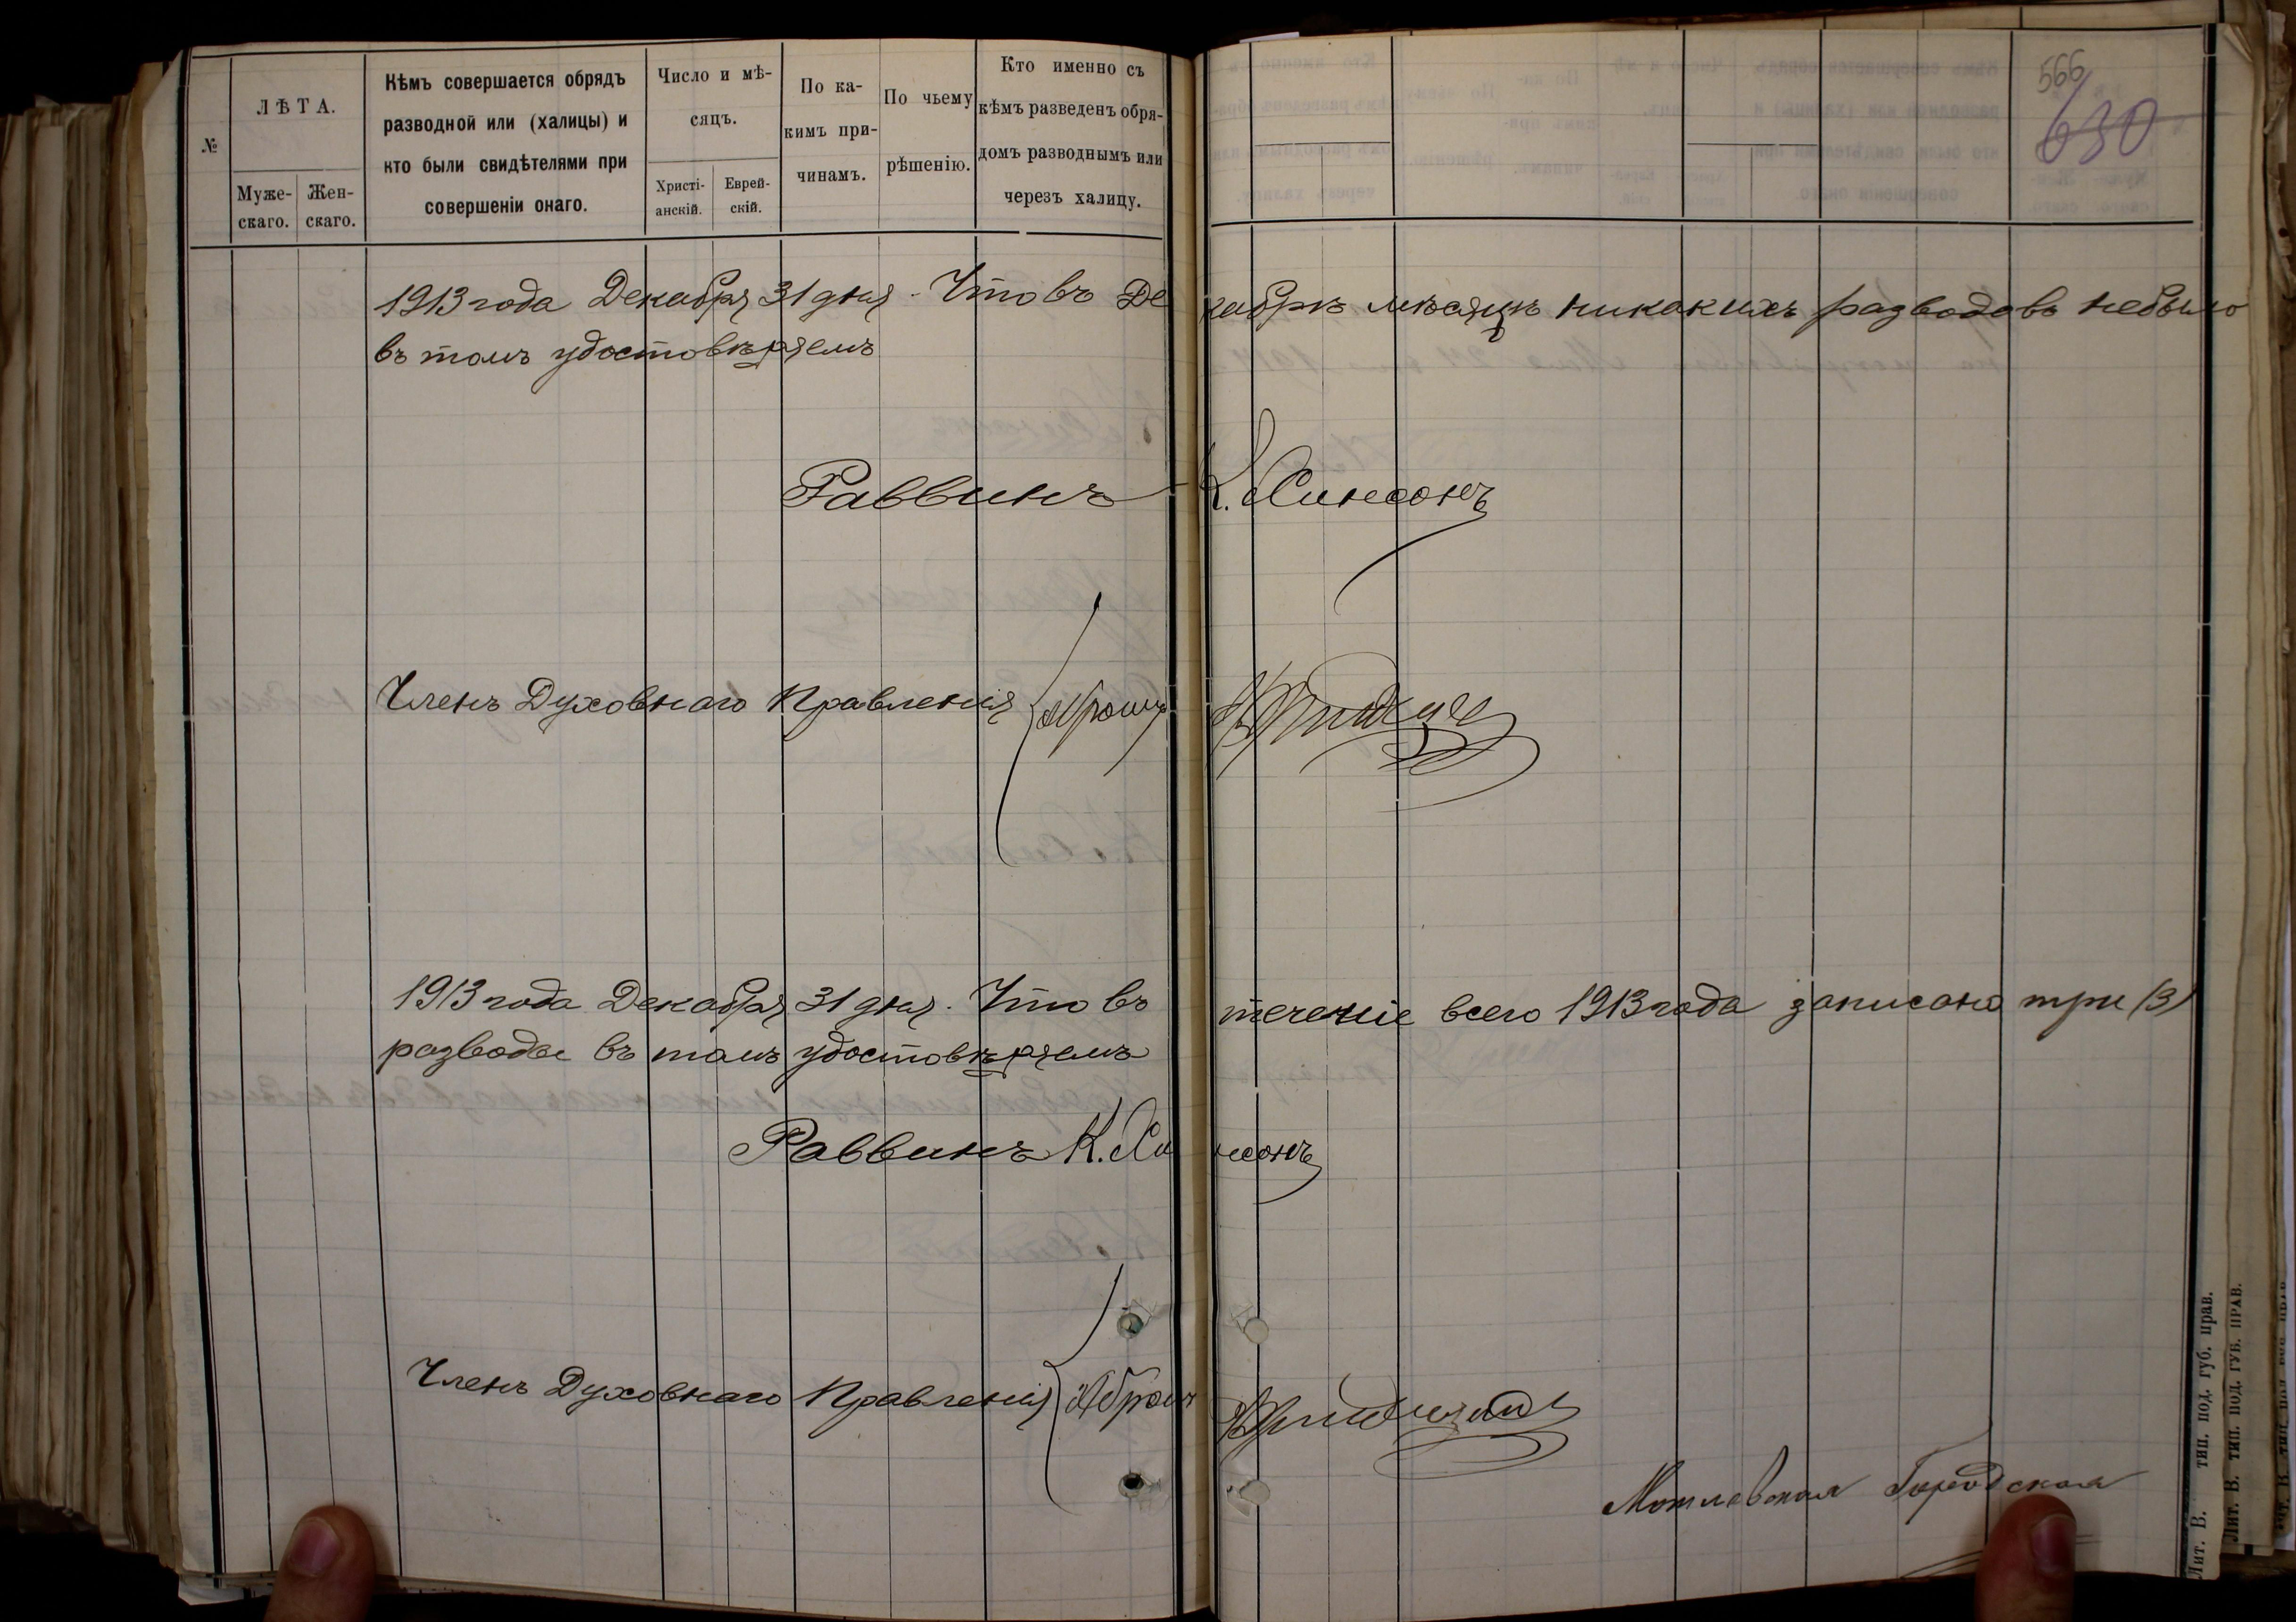 №
ЛѢТА.
Муже-
скаго.
Жен-
скаго.
Кѣмъ совершается обрядъ
разводной или (халицы) и
кто были свидѣтелями при
совершеніи онаго.
Число и мѣ-
сяцъ.
Христі-
анскій.
Еврей-
скій.
По ка-
кимъ при-
чинамъ.
По чьему
рѣшенію.
Кто именно съ
кѣмъ разведенъ обря-
домъ разводнымъ или
черезъ халицу.
566
630
1913 года Декабря 31 дня. Что въ Декабрѣ мѣсяцѣ никакихъ разводовъ небыло
въ томъ удостовѣряемъ
Раввинъ К.
Членъ Духовнаго Правленія
1913 года Декабря 31 дня. Что въ теченіе всего 1913 года записано три (3)
разводы въ томъ удостовѣряемъ
Раввинъ К.
Членъ Духовнаго Правленія Абрамъ
Городская
Лит. В. тип. под. губ. прав.
Лит. В. тип. под. губ. прав.